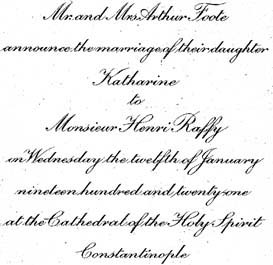 Mr. and Mrs. Arthur Foote
announce the marriage of their daughter
Katharine
to
Monsieur Henri Raffy
on Wednesday the twelfth of January
nineteen hundred and twenty-one
at the Cathedral of the Holy Spirit
Constantinople